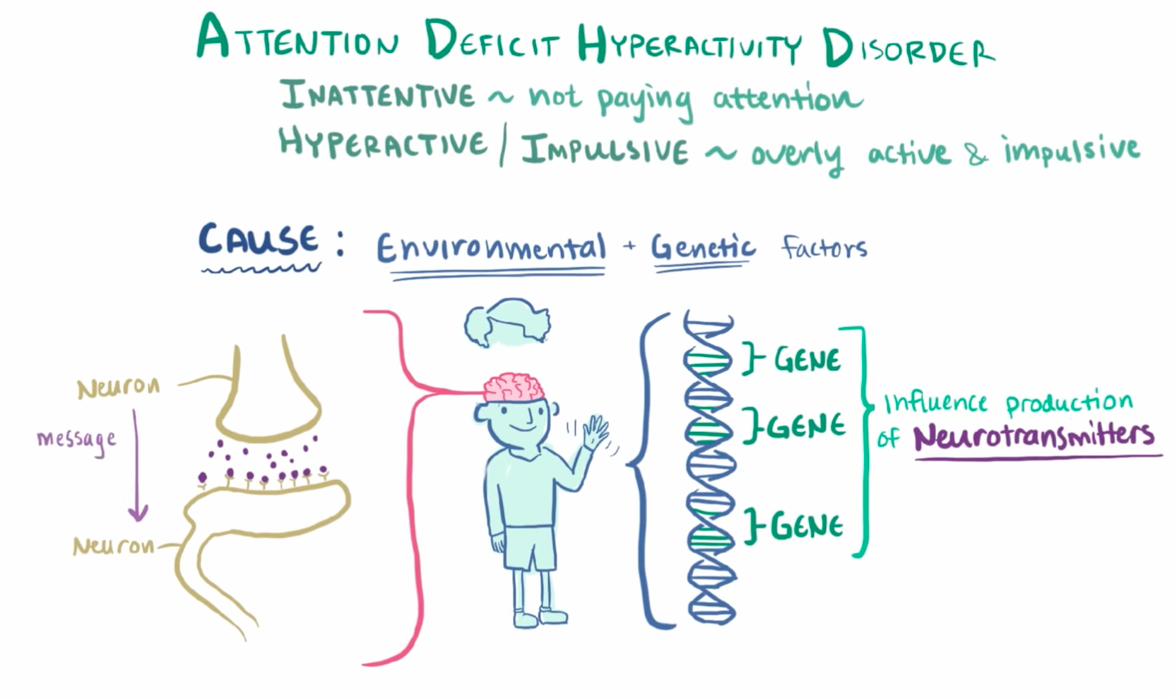 ATTENTION DEFICIT HYPERACTIVITY DISORDER
INATTENTIVE ~ not paying attention
HYPERACTIVE / IMPULSIVE ~ overly active & impulsive
CAUSE: Environmental + Genetic factors
Neuron
message
Neuron
GENE
GENE
GENE
Influence production
of Neurotransmitters